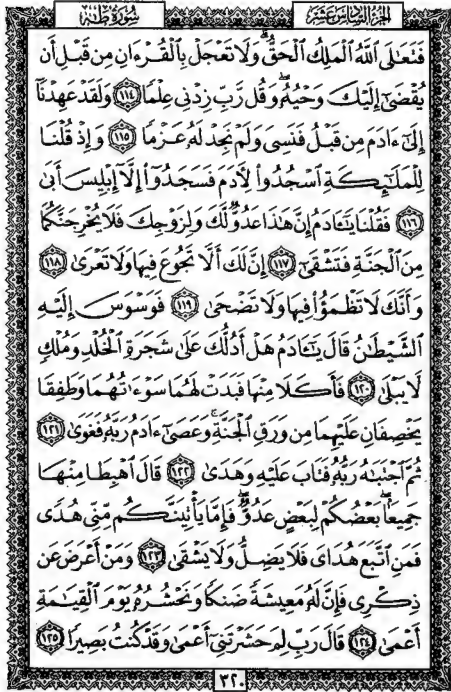 الجزء السادس عشر سورة طه
فَتَعَٰلَى ٱللَّهُ ٱلْمَلِكُ ٱلْحَقُّ ۗ وَلَا تَعْجَلْ بِٱلْقُرْءَانِ مِن قَبْلِ أَن
يُقْضَىٰٓ إِلَيْكَ وَحْيُهُۥ ۖ وَقُل رَّبِّ زِدْنِى عِلْمًا ١١٤ وَلَقَدْ عَهِدْنَآ
إِلَىٰٓ ءَادَمَ مِن قَبْلُ فَنَسِىَ وَلَمْ نَجِدْ لَهُۥ عَزْمًا ١١٥ وَإِذْ قُلْنَا
لِلْمَلَٰٓئِكَةِ ٱسْجُدُوا۟ لِـَٔادَمَ فَسَجَدُوٓا۟ إِلَّآ إِبْلِيسَ أَبَىٰ
١١٦ فَقُلْنَا يَٰٓـَٔادَمُ إِنَّ هَٰذَا عَدُوٌّ لَّكَ وَلِزَوْجِكَ فَلَا يُخْرِجَنَّكُمَا
مِنَ ٱلْجَنَّةِ فَتَشْقَىٰٓ ١١٧ إِنَّ لَكَ أَلَّا تَجُوعَ فِيهَا وَلَا تَعْرَىٰ ١١٨
وَأَنَّكَ لَا تَظْمَؤُا۟ فِيهَا وَلَا تَضْحَىٰ ١١٩ فَوَسْوَسَ إِلَيْهِ
ٱلشَّيْطَٰنُ قَالَ يَٰٓـَٔادَمُ هَلْ أَدُلُّكَ عَلَىٰ شَجَرَةِ ٱلْخُلْدِ وَمُلْكٍ
لَّا يَبْلَىٰ ١٢٠ فَأَكَلَا مِنْهَا فَبَدَتْ لَهُمَا سَوْءَٰتُهُمَا وَطَفِقَا
يَخْصِفَانِ عَلَيْهِمَا مِن وَرَقِ ٱلْجَنَّةِ ۚ وَعَصَىٰٓ ءَادَمُ رَبَّهُۥ فَغَوَىٰ ١٢١
ثُمَّ ٱجْتَبَٰهُ رَبُّهُۥ فَتَابَ عَلَيْهِ وَهَدَىٰ ١٢٢ قَالَ ٱهْبِطَا مِنْهَا
جَمِيعًۢا ۖ بَعْضُكُمْ لِبَعْضٍ عَدُوٌّ ۖ فَإِمَّا يَأْتِيَنَّكُم مِّنِّى هُدًى
فَمَنِ ٱتَّبَعَ هُدَاىَ فَلَا يَضِلُّ وَلَا يَشْقَىٰ ١٢٣ وَمَنْ أَعْرَضَ عَن
ذِكْرِى فَإِنَّ لَهُۥ مَعِيشَةً ضَنكًا وَنَحْشُرُهُۥ يَوْمَ ٱلْقِيَٰمَةِ
أَعْمَىٰ ١٢٤ قَالَ رَبِّ لِمَ حَشَرْتَنِىٓ أَعْمَىٰ وَقَدْ كُنتُ بَصِيرًا ١٢٥
٣٢٠